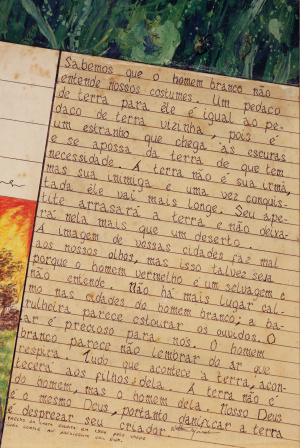 Sabemos que o homem branco não
entende nossos costumes. Um pedaço
de terra para ele é igual ao pe-
daço de terra vizinha, pois é
um estranho que chega às escuras
e se apossa da terra de que tem
necessidade. A terra não é sua irmã,
mas sua inimiga e uma vez conquis-
tada ele vai mais longe. Seu ape-
tite arrasará a terra e não deixa-
rá nela mais que um deserto.
A imagem de vossas cidades faz mal
aos nossos olhos, mas isso talvez seja
porque o homem vermelho é um selvagem e
não entende. Não há mais lugar cal-
mo nas cidades do homem branco; a ba-
rulheira parece estourar os ouvidos. O
ar é precioso para nós. O homem
branco parece não lembrar do ar que
respira. Tudo que acontece à terra, acon-
tecerá aos filhos dela. A terra não é
do homem, mas o homem dela. Nosso Deus
é o mesmo Deus, portanto danificar a terra
é desprezar seu criador